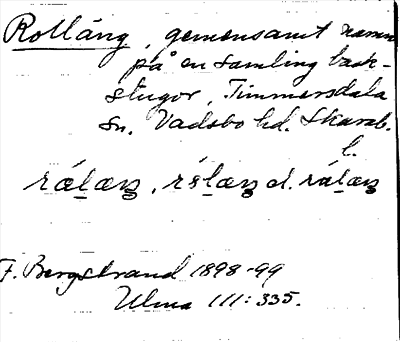 Rolläng, gemensamt namn
på en samling back-
stugor, Timmersdala
sn. Vadsbo hd. Skarab.
l.
F. Bergstrand 1898-99
Ulma 111:335.